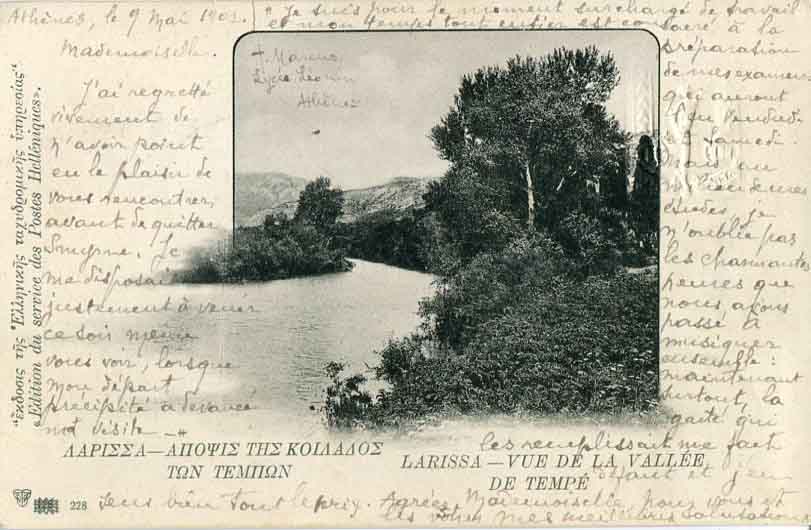 Athènes, le 9 Mai 1901.
Mademoiselle.
J'ai regretté
vivement de
n'avoir point
eu le plaisir de
vous rencontrer,
avant de quitter
Smyrne. Je
me disposais
justement à venir
ce soir même
vous voir, lorsque
mon départ
précipité a devancé
ma visite. —#
Je suis pour le moment surchargé de travail
et mon temps tout entier est consacré à la
préparation
de mes examens
qui auront
lieu vendredi
et Samedi.
Mais au
milieu de mes
études je
n'oublie pas
les charmantes
heures que
nous avons
passé à
musiquer
ensemble:
maintenant
surtout, la
gaîté qui
les remplissait me fait
défaut et j'en
sens bien tout le prix. Agréez Mademoiselle pour vous et
les vôtres mes meilleures salutations
+ Marcus
Lycée Léonin
Athènes
„Ἔκδοσις τῆς Ἑλληνικῆς ταχυδρομικῆς ὑπηρεσίας„
«Edition du service des Postes Helléniques».
ΛΑΡΙΣΣΑ—ΑΠΟΨΙΣ ΤΗΣ ΚΟΙΛΑΔΟΣ
ΤΩΝ ΤΕΜΠΩΝ
LARISSA — VUE DE LA VALLÉE
DE TEMPÉ
228